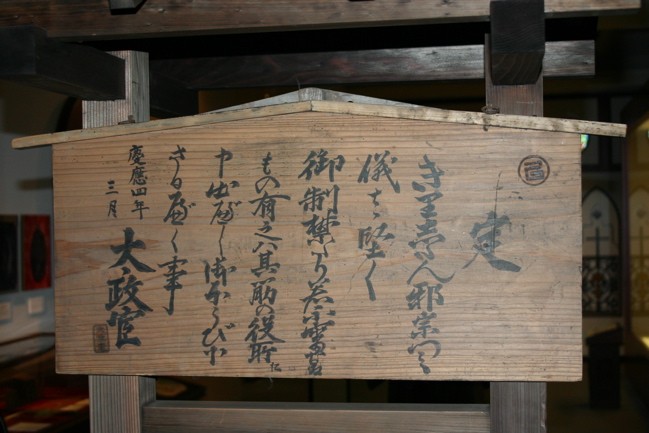 定
きりしたん邪宗門之
儀は堅く
御制禁たり若不審成
もの有之ハ其筋の役所に
申出べし御ほうび下
さるべく事
慶應四年
三月
太政官